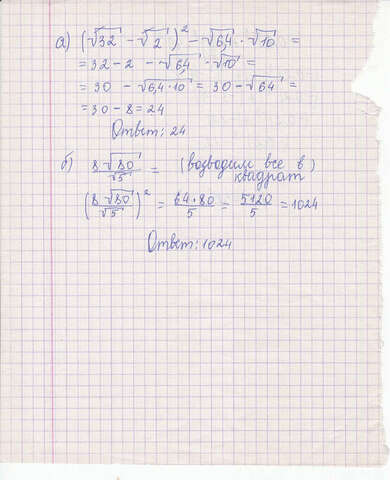 а) (√32 - √2)² - √6,4 · √10 =
= 32 - 2 - √6,4 · √10 =
= 30 - √6,4·10 = 30 - √64 =
= 30 - 8 = 24
Ответ: 24
б) 8√80/√5 = (возводим все в квадрат)
(8√80/√5)² = 64·80/5 = 5120/5 = 1024
Ответ: 1024